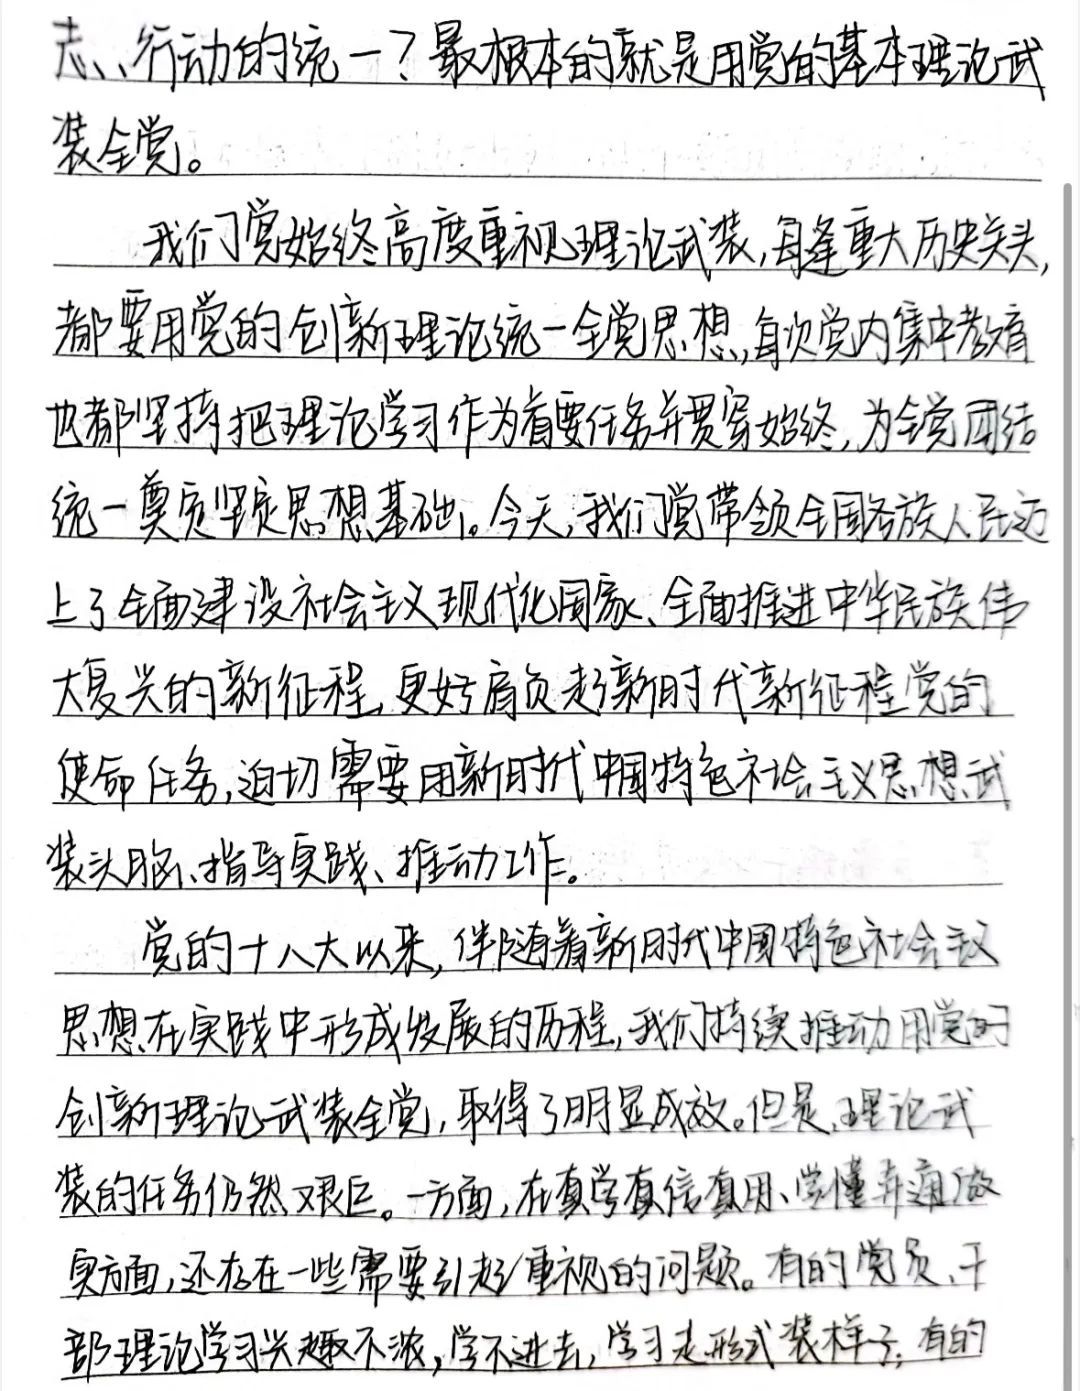 志、行动的统一？最根本的就是用党的基本理论武
装全党。
我们党始终高度重视理论武装，每逢重大历史关头，
都要用党的创新理论统一全党思想，每次党内集中教育
也都坚持把理论学习作为首要任务并贯穿始终，为全党团结
统一奠定坚实思想基础。今天，我们党带领全国各族人民迈
上了全面建设社会主义现代化国家、全面推进中华民族伟
大复兴的新征程，更好肩负起新时代新征程党的
使命任务，迫切需要用新时代中国特色社会主义思想武
装头脑、指导实践、推动工作。
党的十八大以来，伴随着新时代中国特色社会主义
思想在实践中形成发展的历程，我们持续推动用党的
创新理论武装全党，取得了明显成效。但是，理论武
装的任务仍然艰巨。一方面，在真学真信真用、学懂弄通做
实方面，还存在一些需要引起重视的问题。有的党员、干
部理论学习兴趣不浓，学不进去，学习走形式装样子；有的